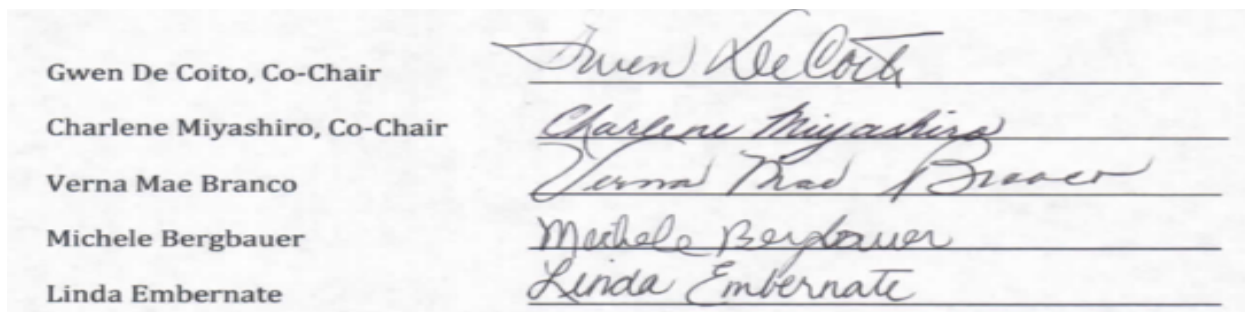 Gwen De Coito, Co-Chair Gwen De Coito
Charlene Miyashiro, Co-Chair Charlene Miyashiro
Verna Mae Branco Verna Mae Branco
Michele Bergbauer Michele Bergbauer
Linda Embernate Linda Embernate